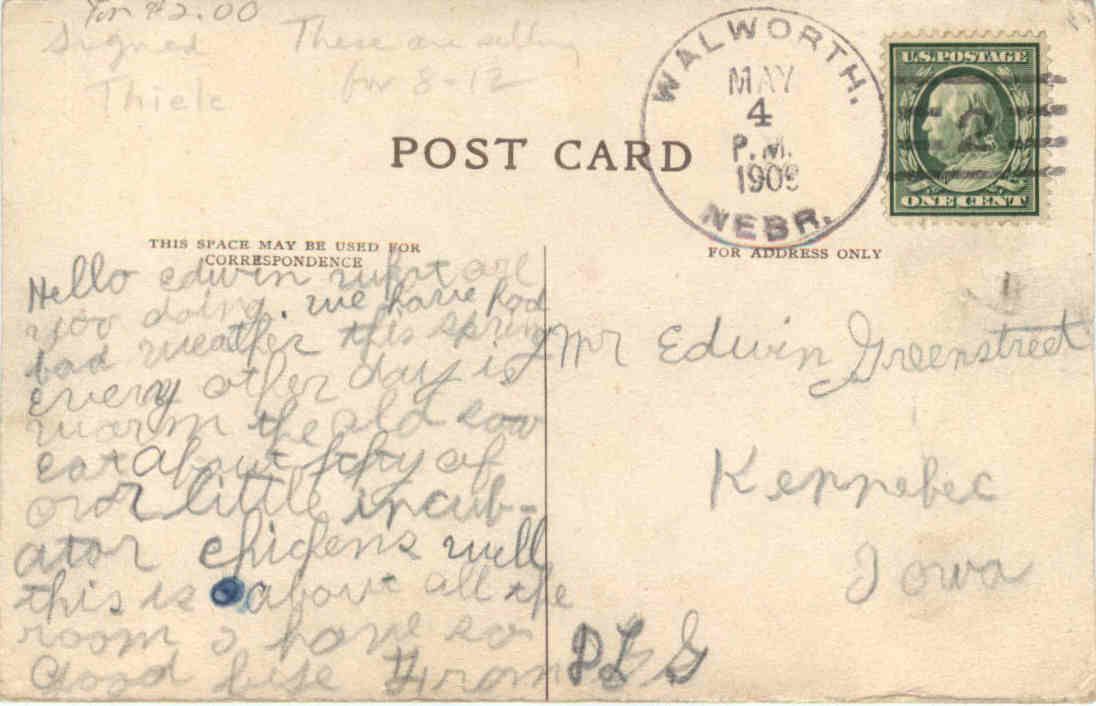 for $2.00
Signed
Thiele
These are selling
for 8-12
POST CARD
WALWORTH.
MAY
4
P.M.
1909
NEBR.
U.S. POSTAGE
2
ONE CENT
THIS SPACE MAY BE USED FOR
CORRESPONDENCE
FOR ADDRESS ONLY
Hello edwin what are
you doing. we have had
bad weather this spring
every other day is
warm the old sow
eat about fifty of
our little incub-
ator chigens well
this is about all the
room I have so
Good bye From
P L G
Mr Edwin Greenstreet
Kennebec
Iowa